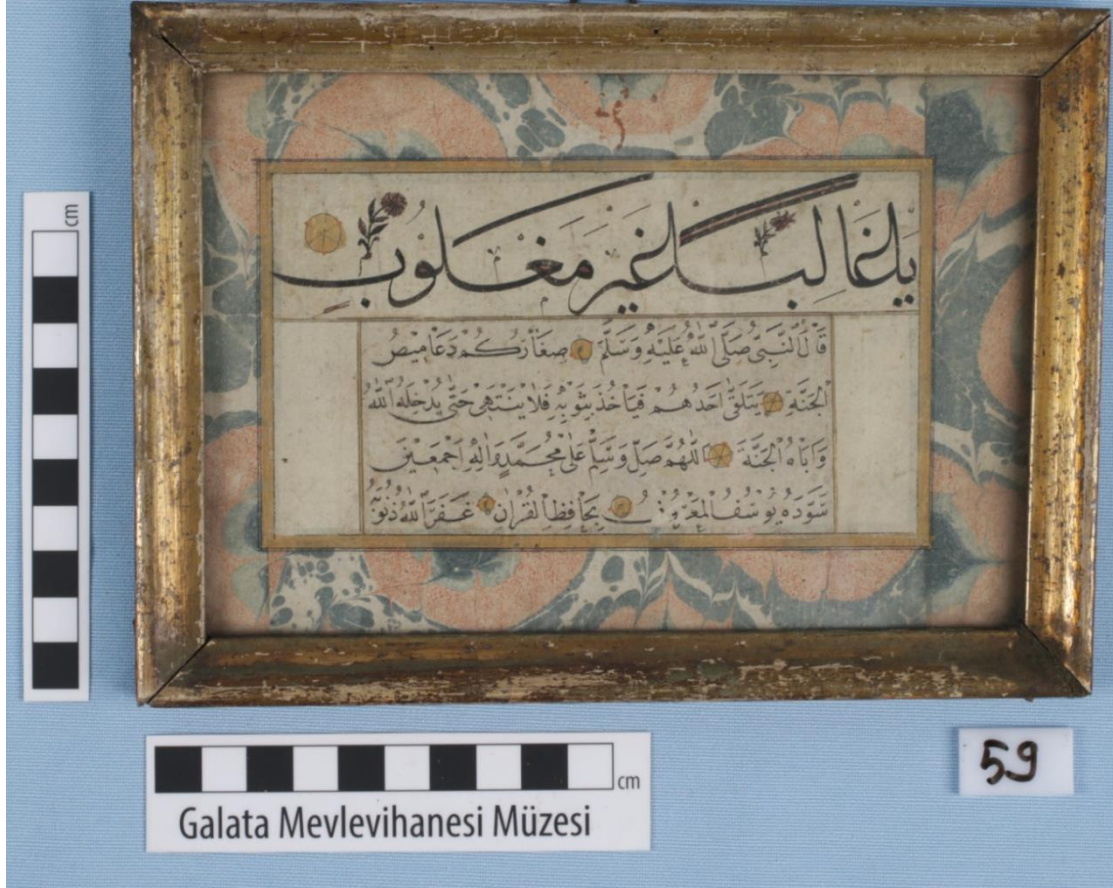 يا غالبا غير مغلوب
قَالَ النَّبِيُّ صَلَّى اللّٰهُ عَلَيْهِ وَسَلَّمَ صِغَارُكُمْ دَعَامِيصُ
الْجَنَّةِ يَتَلَقّٰى اَحَدُهُمْ فَيَاْخُذُ بِثَوْبِهِ فَلَا يَنْتَهِى حَتّٰى يُدْخِلَهُ اللّٰهُ
وَاَبَاهُ الْجَنَّةَ اَللّٰهُمَّ صَلِّ وَسَلِّمْ عَلٰى مُحَمَّدٍ وَاٰلِهِ اَجْمَعِينَ
سَوَّدَهُ يُوسُفُ الْمَعْرُوفُ بِحَافِظِ الْقُرْاٰنِ غَفَرَ اللّٰهُ ذُنُوبَهُ
cm
cm
Galata Mevlevihanesi Müzesi
59